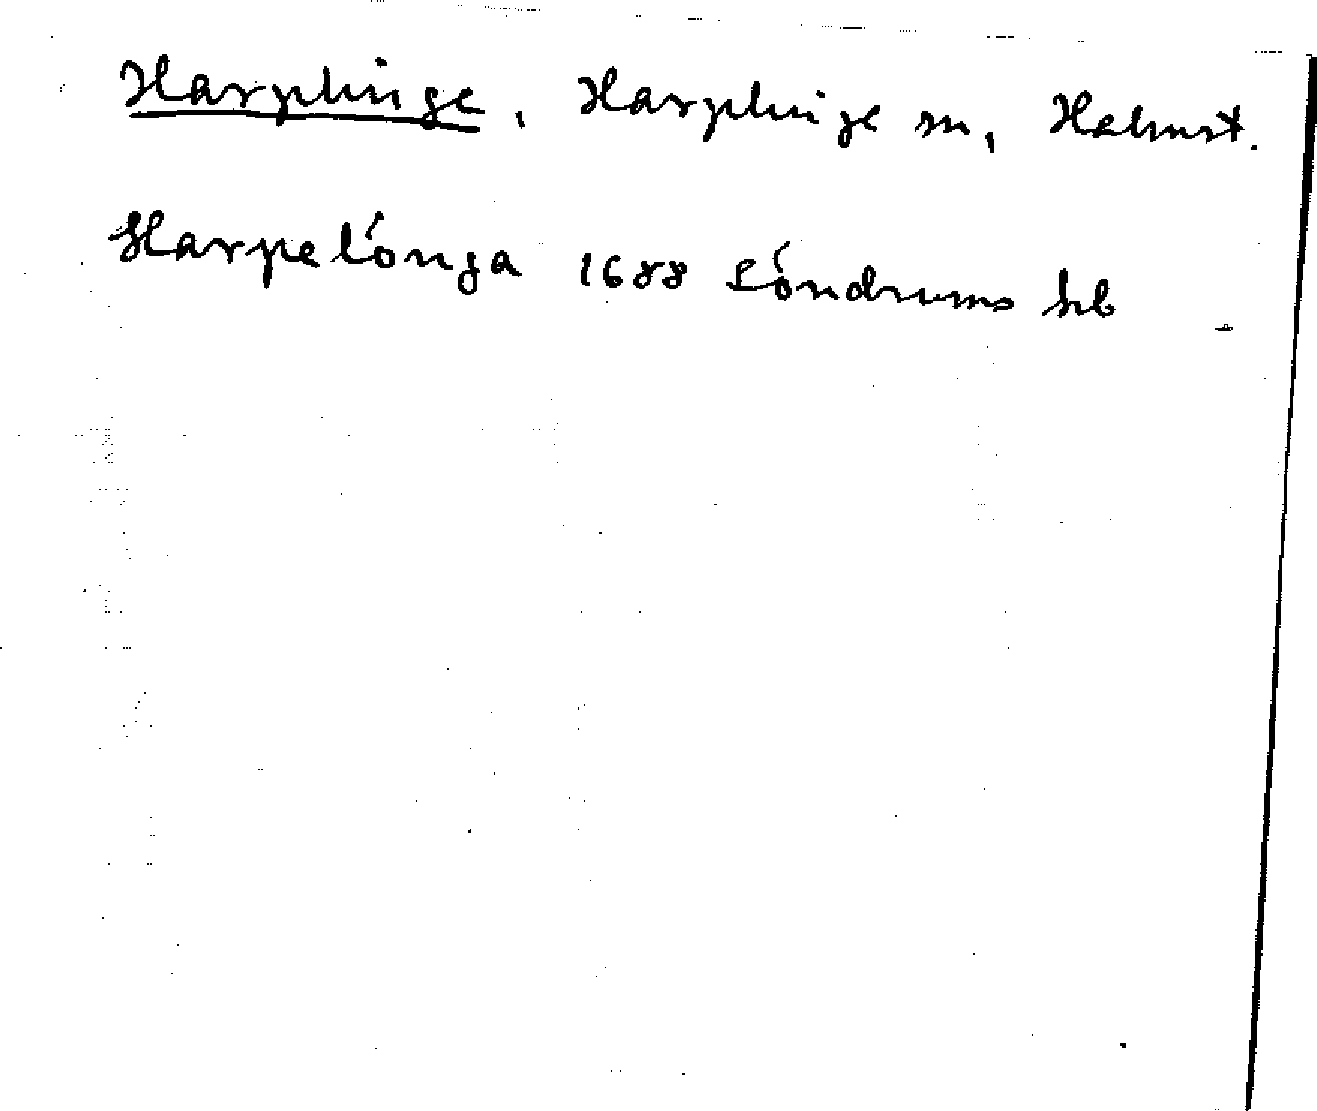 Harplinge, Harplinge sn, Halmst.
Harpelónga 1688 Söndrums kb